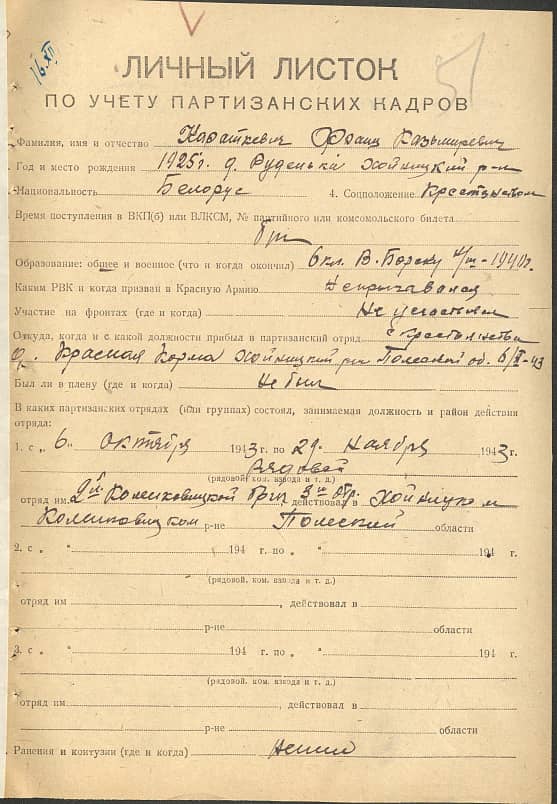 16.XII
51
ЛИЧНЫЙ ЛИСТОК
ПО УЧЕТУ ПАРТИЗАНСКИХ КАДРОВ
Фамилия, имя и отчество Караткевич Франц Казьмиревич
Год и место рождения 1925 г. д. Руденька Хойницкий р-н
Национальность Белорус 4. Соцположение
Время поступления в ВКП(б) или ВЛКСМ, № партийного или комсомольского билета
Образование: общее и военное (что и когда окончил) 6 кл. В. Борску 1940 г.
Каким РВК и когда призван в Красную Армию Не призывался
Участие на фронтах (где и когда) Не участвовал
Откуда, когда и с какой должности прибыл в партизанский отряд
д. Красная Корма Хойницкий р-н Полеской об. 6/X-43
Был ли в плену (где и когда) не был
В каких партизанских отрядах (или группах) состоял, занимаемая должность и район действия
отряда:
1. с „6„ октября 1943 г. по 29 ноября 1943 г.
Рядовой
(рядовой, ком. взвода и т. д.)
отряд им. 2й Коменковицкой бриг 3й отр., действовал в Хойницком
Коменковицком р-не Полеский области
2. с „ „ 194 г. по „ „ 194 г.
(рядовой, ком. взвода и т. д.)
отряд им , действовал в
р-не области
3. с „ „ 194 г. по „ „ 194 г.
(рядовой, ком. взвода и т. д.)
отряд им. , действовал в
р-не области
Ранения и контузии (где и когда)